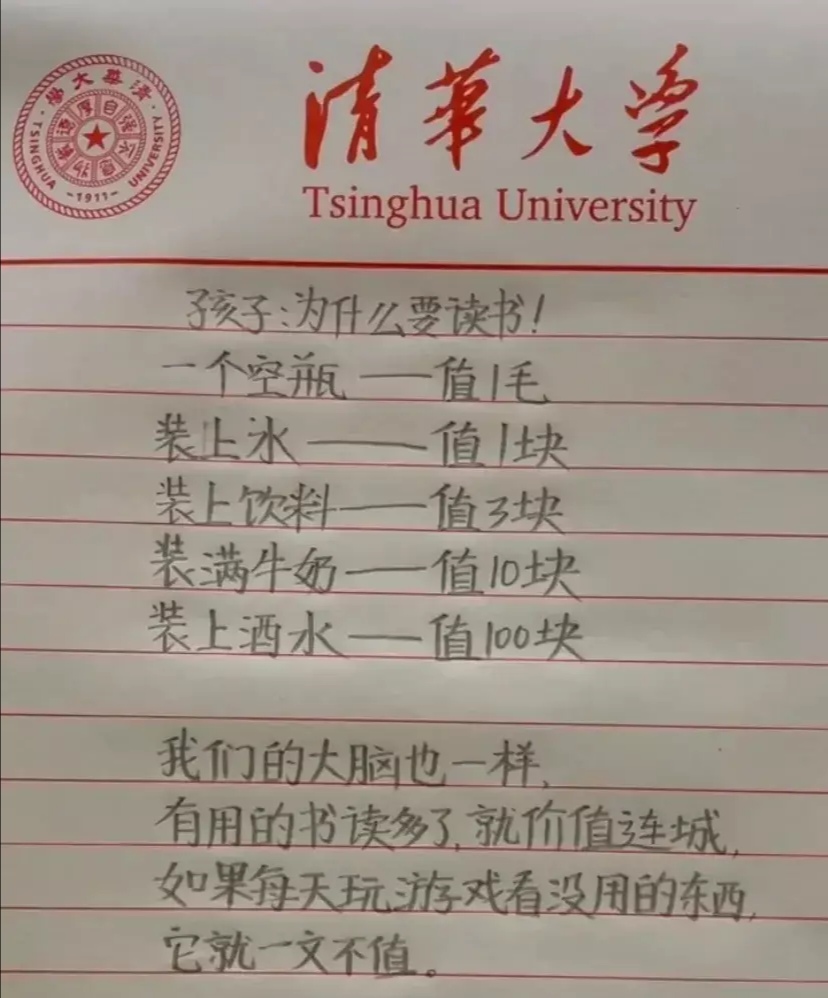 清華大学
Tsinghua University
清華大學
自强不息
厚德載物
TSINGHUA UNIVERSITY
-1911-
孩子:为什么要读书!
一个空瓶——值1毛
装上水——值1块
装上饮料——值3块
装满牛奶——值10块
装上酒水——值100块
我们的大脑也一样,
有用的书读多了,就价值连城,
如果每天玩游戏看没用的东西,
它就一文不值。